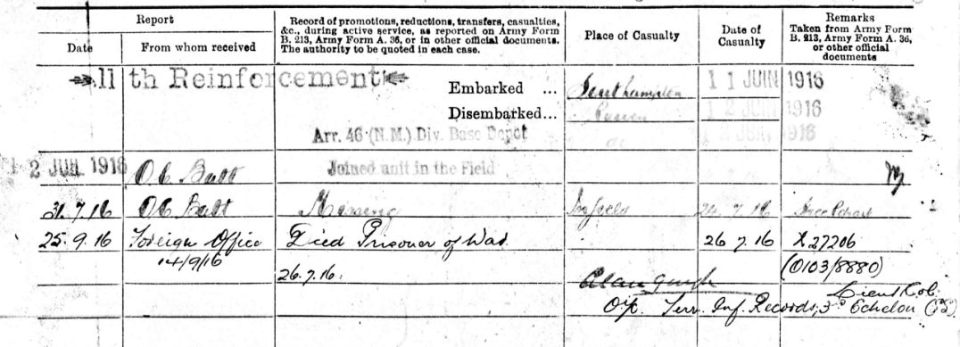 Report
Record of promotions, reductions, transfers, casualties,
&c., during active service, as reported on Army Form
B. 213, Army Form A. 36, or in other official documents.
The authority to be quoted in each case.
Place of Casualty
Date of
Casualty
Remarks
Taken from Army Form
B. 213, Army Form A. 36,
or other official
documents
Date
From whom received
11th Reinforcement
Embarked ...
Southampton
11 JUIN 1916
Disembarked...
Rouen
12 JUIN 1916
Arr. 46 (N.M.) Div. Base Depot
JUIN 1916
2 JUIL 1916
O.C. Batt
Joined unit in the Field
31.7.16
O.C. Batt
Missing
7.16
25.9.16
Foreign Office
14/9/16
Died Prisoner of War
26.7.16.
26 7.16
X27206
(0103/8880)
Lieut Col.
O/c Terr. Inf. Records, 3rd Echelon